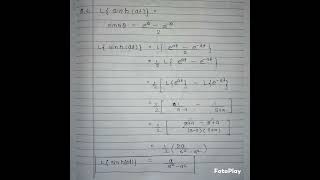 L{ sinh(at)} =
sinhθ = e^θ - e^-θ / 2
L{ sinh(at)} = L{ e^at - e^-at / 2 }
= 1/2 L{ e^at - e^-at }
= 1/2 [ L{e^at} - L{e^-at} ]
= 1/2 [ 1/s-a - 1/s+a ]
= 1/2 [ s+a - s+a / (s-a)(s+a) ]
= 1/2 ( 2a / s²-a² )
L{sinh(at)} = a / s²-a²
FotoPlay